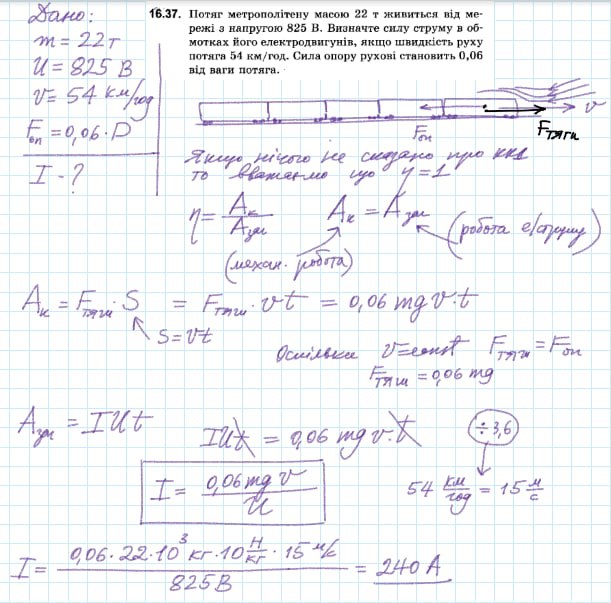 Дано:
m = 22 т
U = 825 В
v = 54 км/год
Fоп = 0,06 · P
I - ?
16.37. Потяг метрополітену масою 22 т живиться від ме-
режі з напругою 825 В. Визначте силу струму в об-
мотках його електродвигунів, якщо швидкість руху
потяга 54 км/год. Сила опору рухові становить 0,06
від ваги потяга.
Fоп
Fтяги
v
Якщо нічого не сказано про ККД
то вважаємо що η = 1
η = Aк / Aзат
Aк = Aзат
(механ. робота)
(робота е/струму)
Aк = Fтяги · S = Fтяги · v t = 0,06 mg v · t
S = vt
Оскільки v = const Fтяги = Fоп
Fтяги = 0,06 mg
Aзат = I U t
I U t = 0,06 mg v · t
÷ 3,6
I = 0,06 mg v / U
54 км/год = 15 м/с
I = 0,06 · 22 · 10³ кг · 10 Н/кг · 15 м/с / 825 В = 240 А